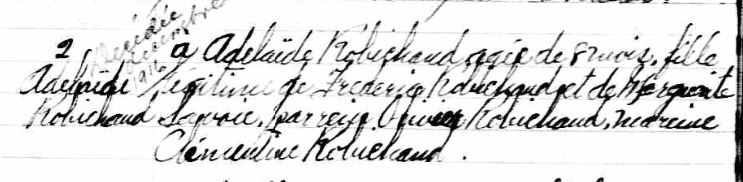 Décédée
décembre
1916
2 a Adelaïde Robichaud agée de 8 mois, fille
Adelaïde légitime de Frederic Robichaud et de Marguerite
Robichaud Savoie, parrein Robichaud, mareine
Clémentine Robichaud.